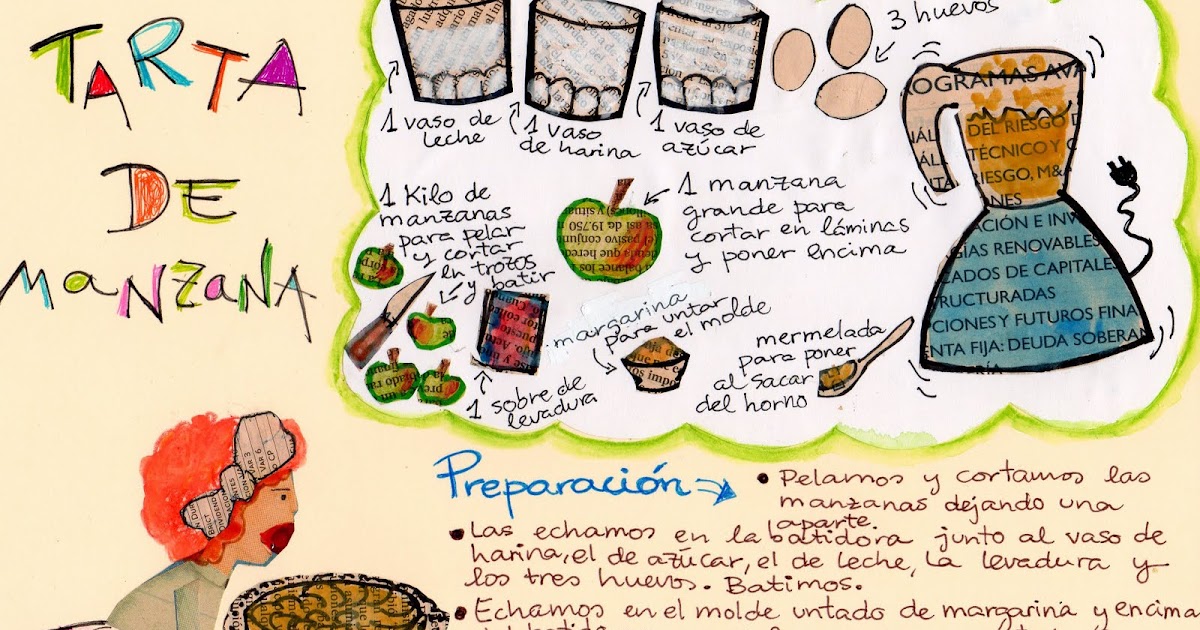 TARTA
DE
MANZANA
3 huevos
1 vaso de
leche
1 vaso
de harina
1 vaso de
azúcar
1 Kilo de
manzanas
para pelar
y cortar
en trozos
y batir
1 manzana
grande para
cortar en láminas
y poner encima
margarina
para untar
el molde
1 sobre de
levadura
mermelada
para poner
al sacar
del horno
OGRAMAS AVA
DEL RIESGO D
TÉCNICO Y
RIESGO, M&A
NES
ACIÓN E INV
GÍAS RENOVABLES
CADOS DE CAPITALES
RUCTURADAS
CIONES Y FUTUROS FINA
NTA FIJA: DEUDA SOBERAN
RÍA
Preparación
• Pelamos y cortamos las
manzanas dejando una
aparte.
• Las echamos en la batidora junto al vaso de
harina, el de azúcar, el de leche, la levadura y
los tres huevos. Batimos.
• Echamos en el molde untado de margarina y encima